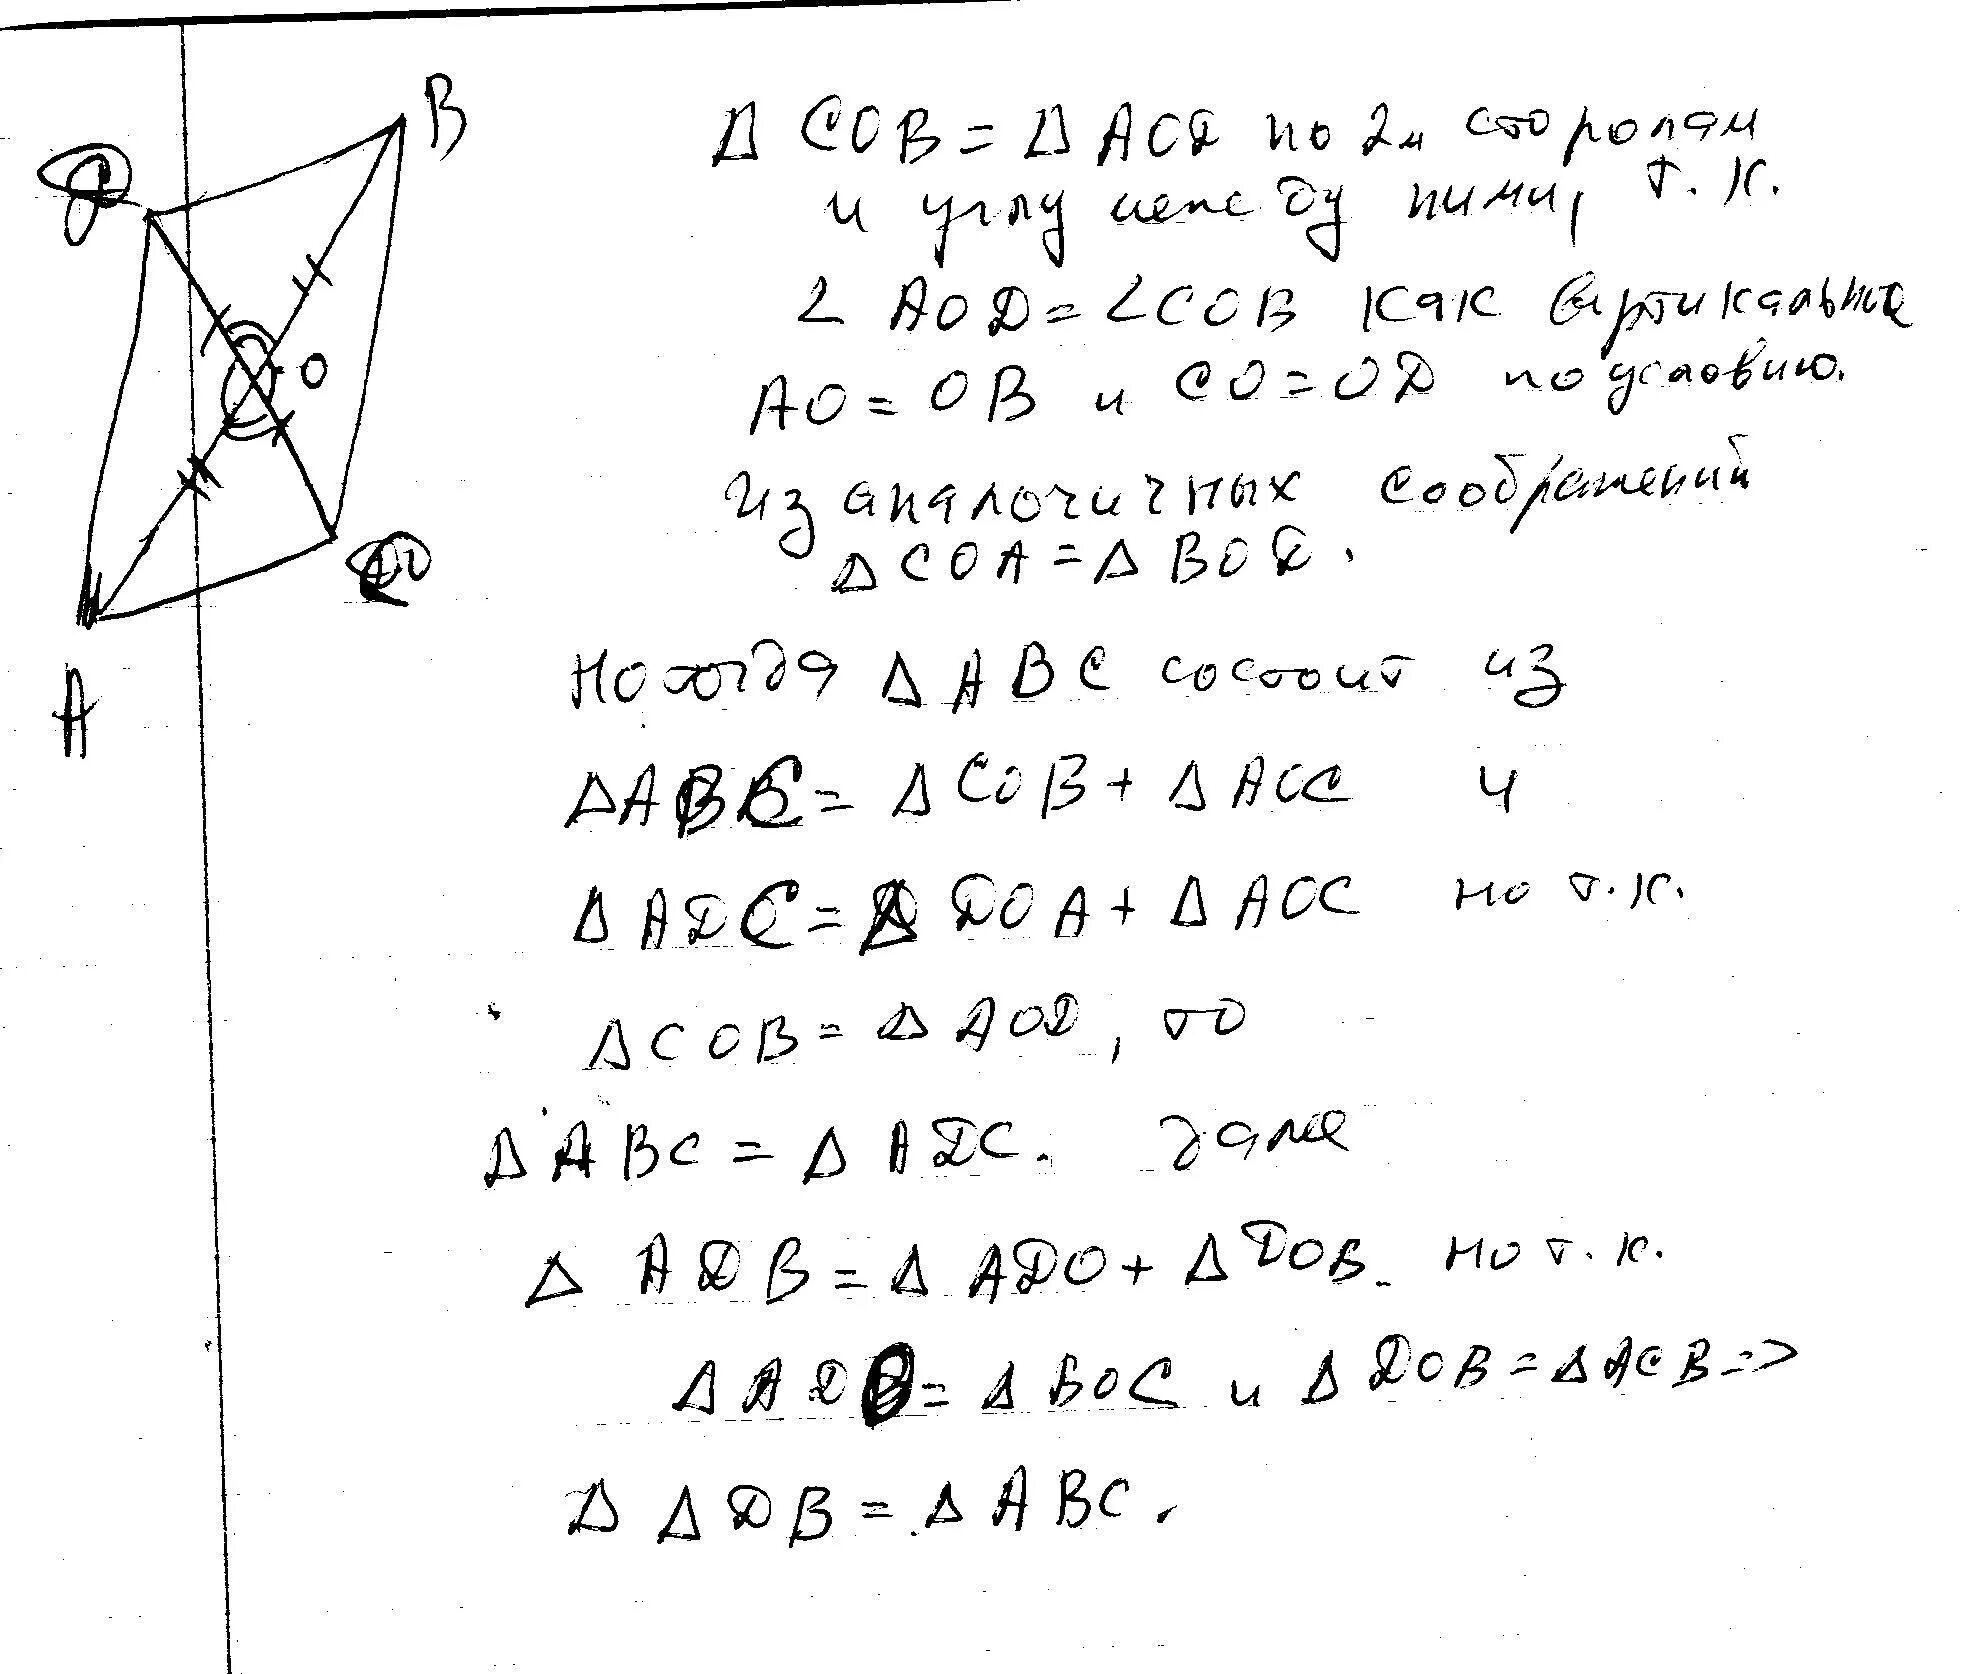 B
C
O
D
A
Δ COB = Δ AOD по 2м сторонам
и углу между ними, т.к.
∠ AOD = ∠COB как вертикальные
AO = OB и CO = OD по условию.
Из аналогичных соображений
Δ COA = Δ BOD.
Но тогда Δ ABC состоит из
Δ ABC = Δ COB + Δ AOC и
Δ ADC = Δ DOA + Δ AOC но т.к.
Δ COB = Δ AOD, то
Δ ABC = Δ ADC. далее
Δ ADB = Δ ADO + Δ DOB. но т.к.
Δ ADO = Δ BOC и Δ DOB = Δ AOB =>
Δ ADB = Δ ABC.